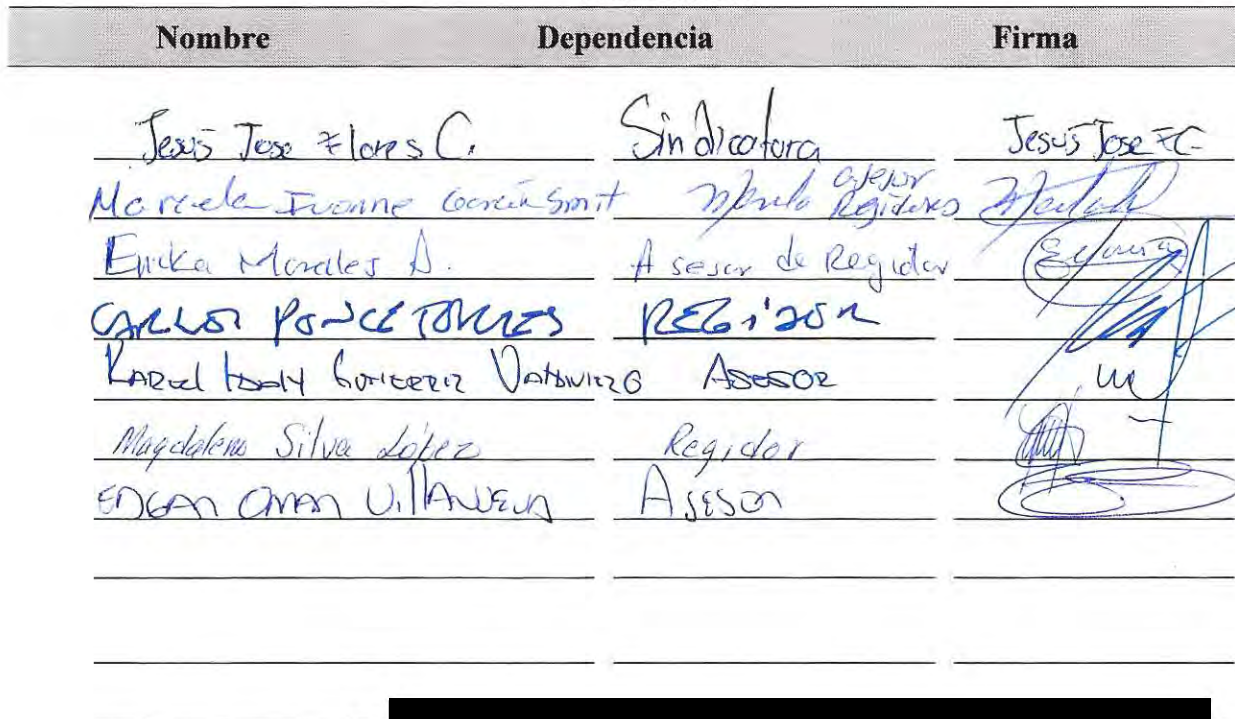 Nombre Dependencia Firma
Jesús Jose Flores C. Sindicatura Jesús Jose FC
Marcela Ivonne García Smit asesor Regidores
Erika Morales A. Asesor de Regidor
CARLOS PONCE TORRES REGIDOR
KARIEL GUTIERREZ ASESOR
Magdalena Silva López Regidor
EDGAR OMAR VILLANUEVA ASESOR